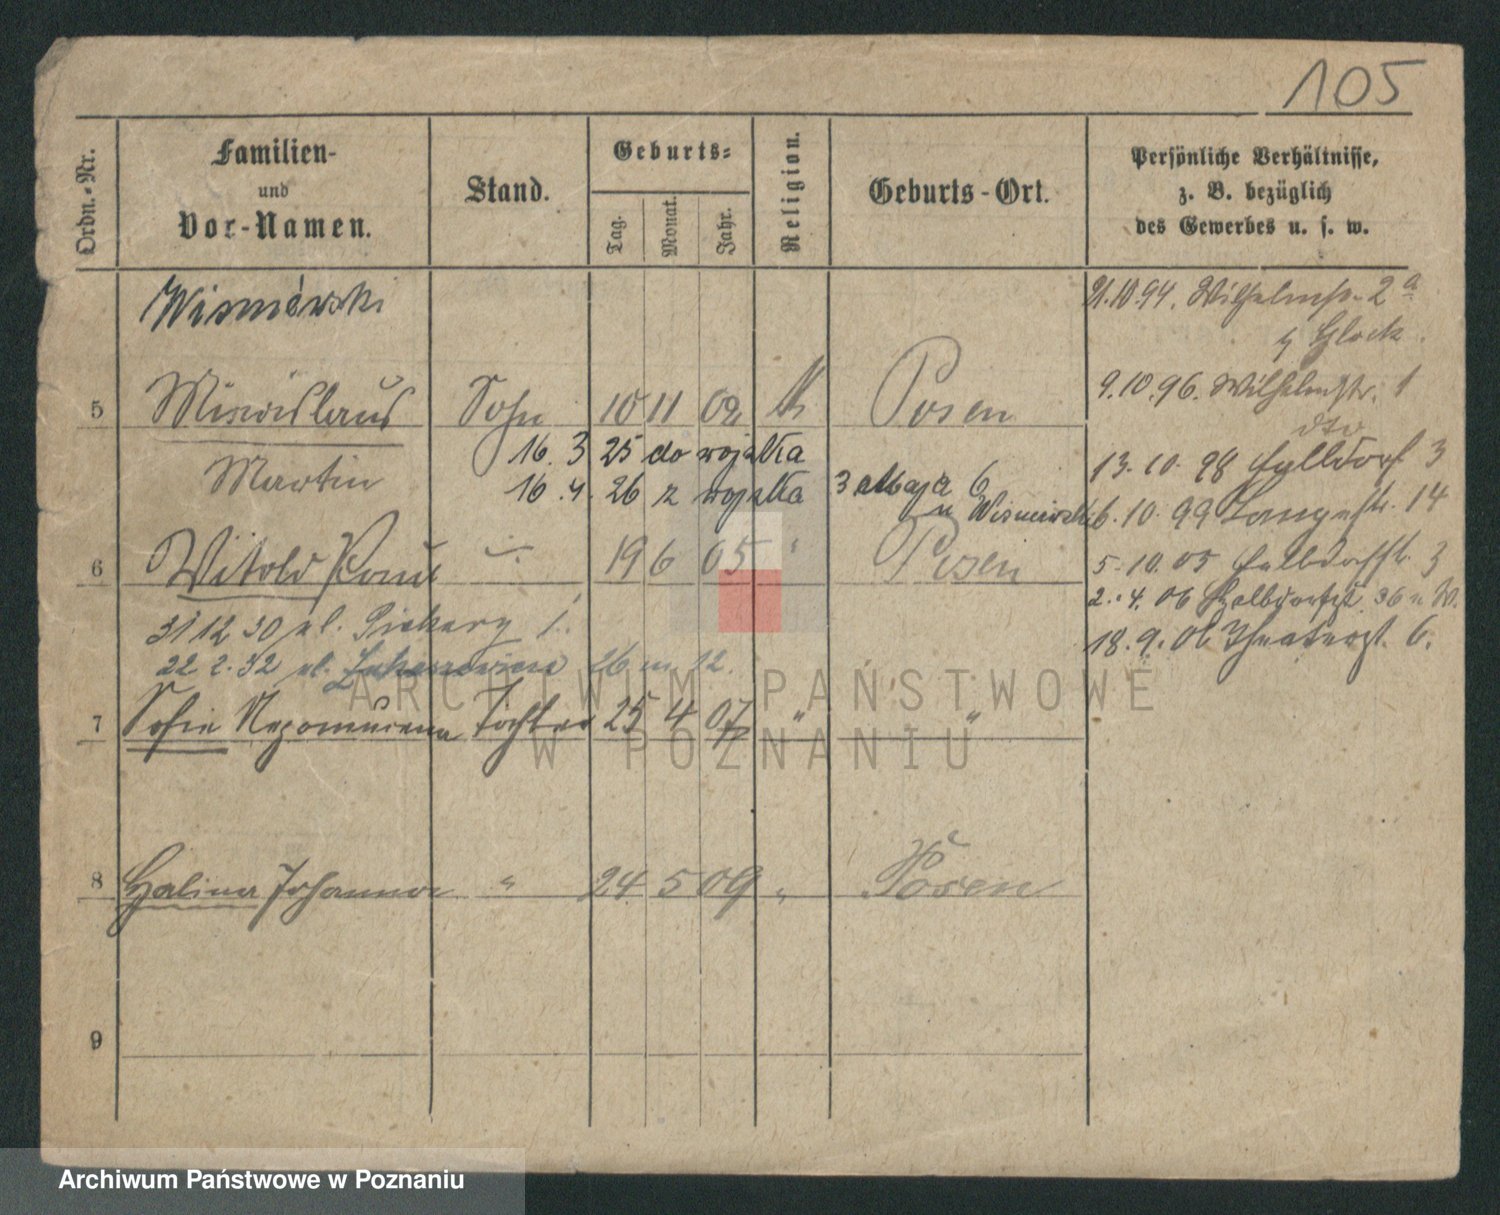 105
Ordn.-Nr.
Familien-
und
Vor-Namen.
Stand.
Geburts-
Tag.
Monat.
Jahr.
Religion.
Geburts-Ort.
Persönliche Verhältnisse,
z. B. bezüglich
des Gewerbes u. s. w.
Wismérski
21.10.94. Wilhelmstr. 2a
Glock
9.10.96. Wilhelmstr. 1
dto
5 Miecislaus Sohn 10 11 02 k Posen
16. 3 25 do wojska
13. 10. 98 Halldorf 3
Martin
16. 4. 26 z wojska 3 maja 6
u Wismierski
6. 10. 99 Langestr. 14
6 Witold Paul " 19 6 05 " Posen
5. 10. 05 Halbdorfstr. 3
2. 4. 06 Halbdorfst. 36 u W.
31 12 30 ul. Piekary
18. 9. 06 Theaterst. 6.
22 2. 32 ul. 26 m 12.
7 Sofie Nepomucena Tochter 25 4 07 " "
8 Halina Johanna " 24 5 09 " Posen
9
ARCHIWUM PAŃSTWOWE
W POZNANIU
Archiwum Państwowe w Poznaniu